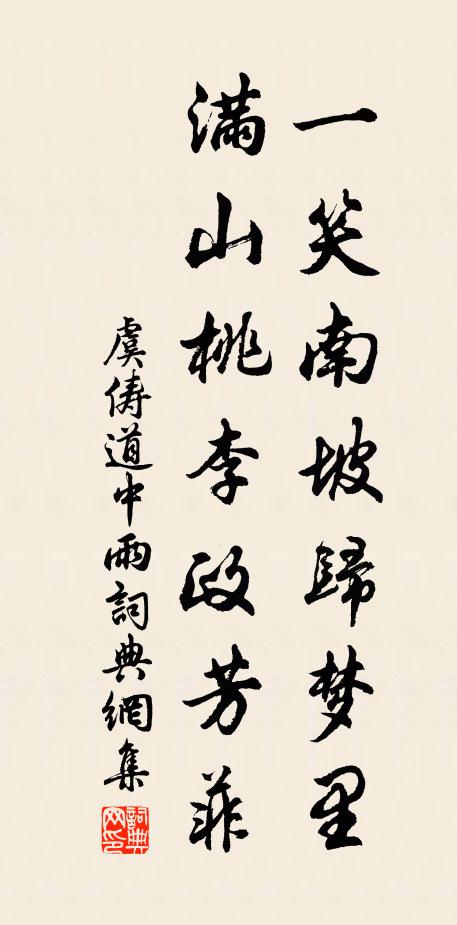 一笑南坡歸梦里
满山桃李政芳菲
虞儔道中雨詞典網集
詞典网印